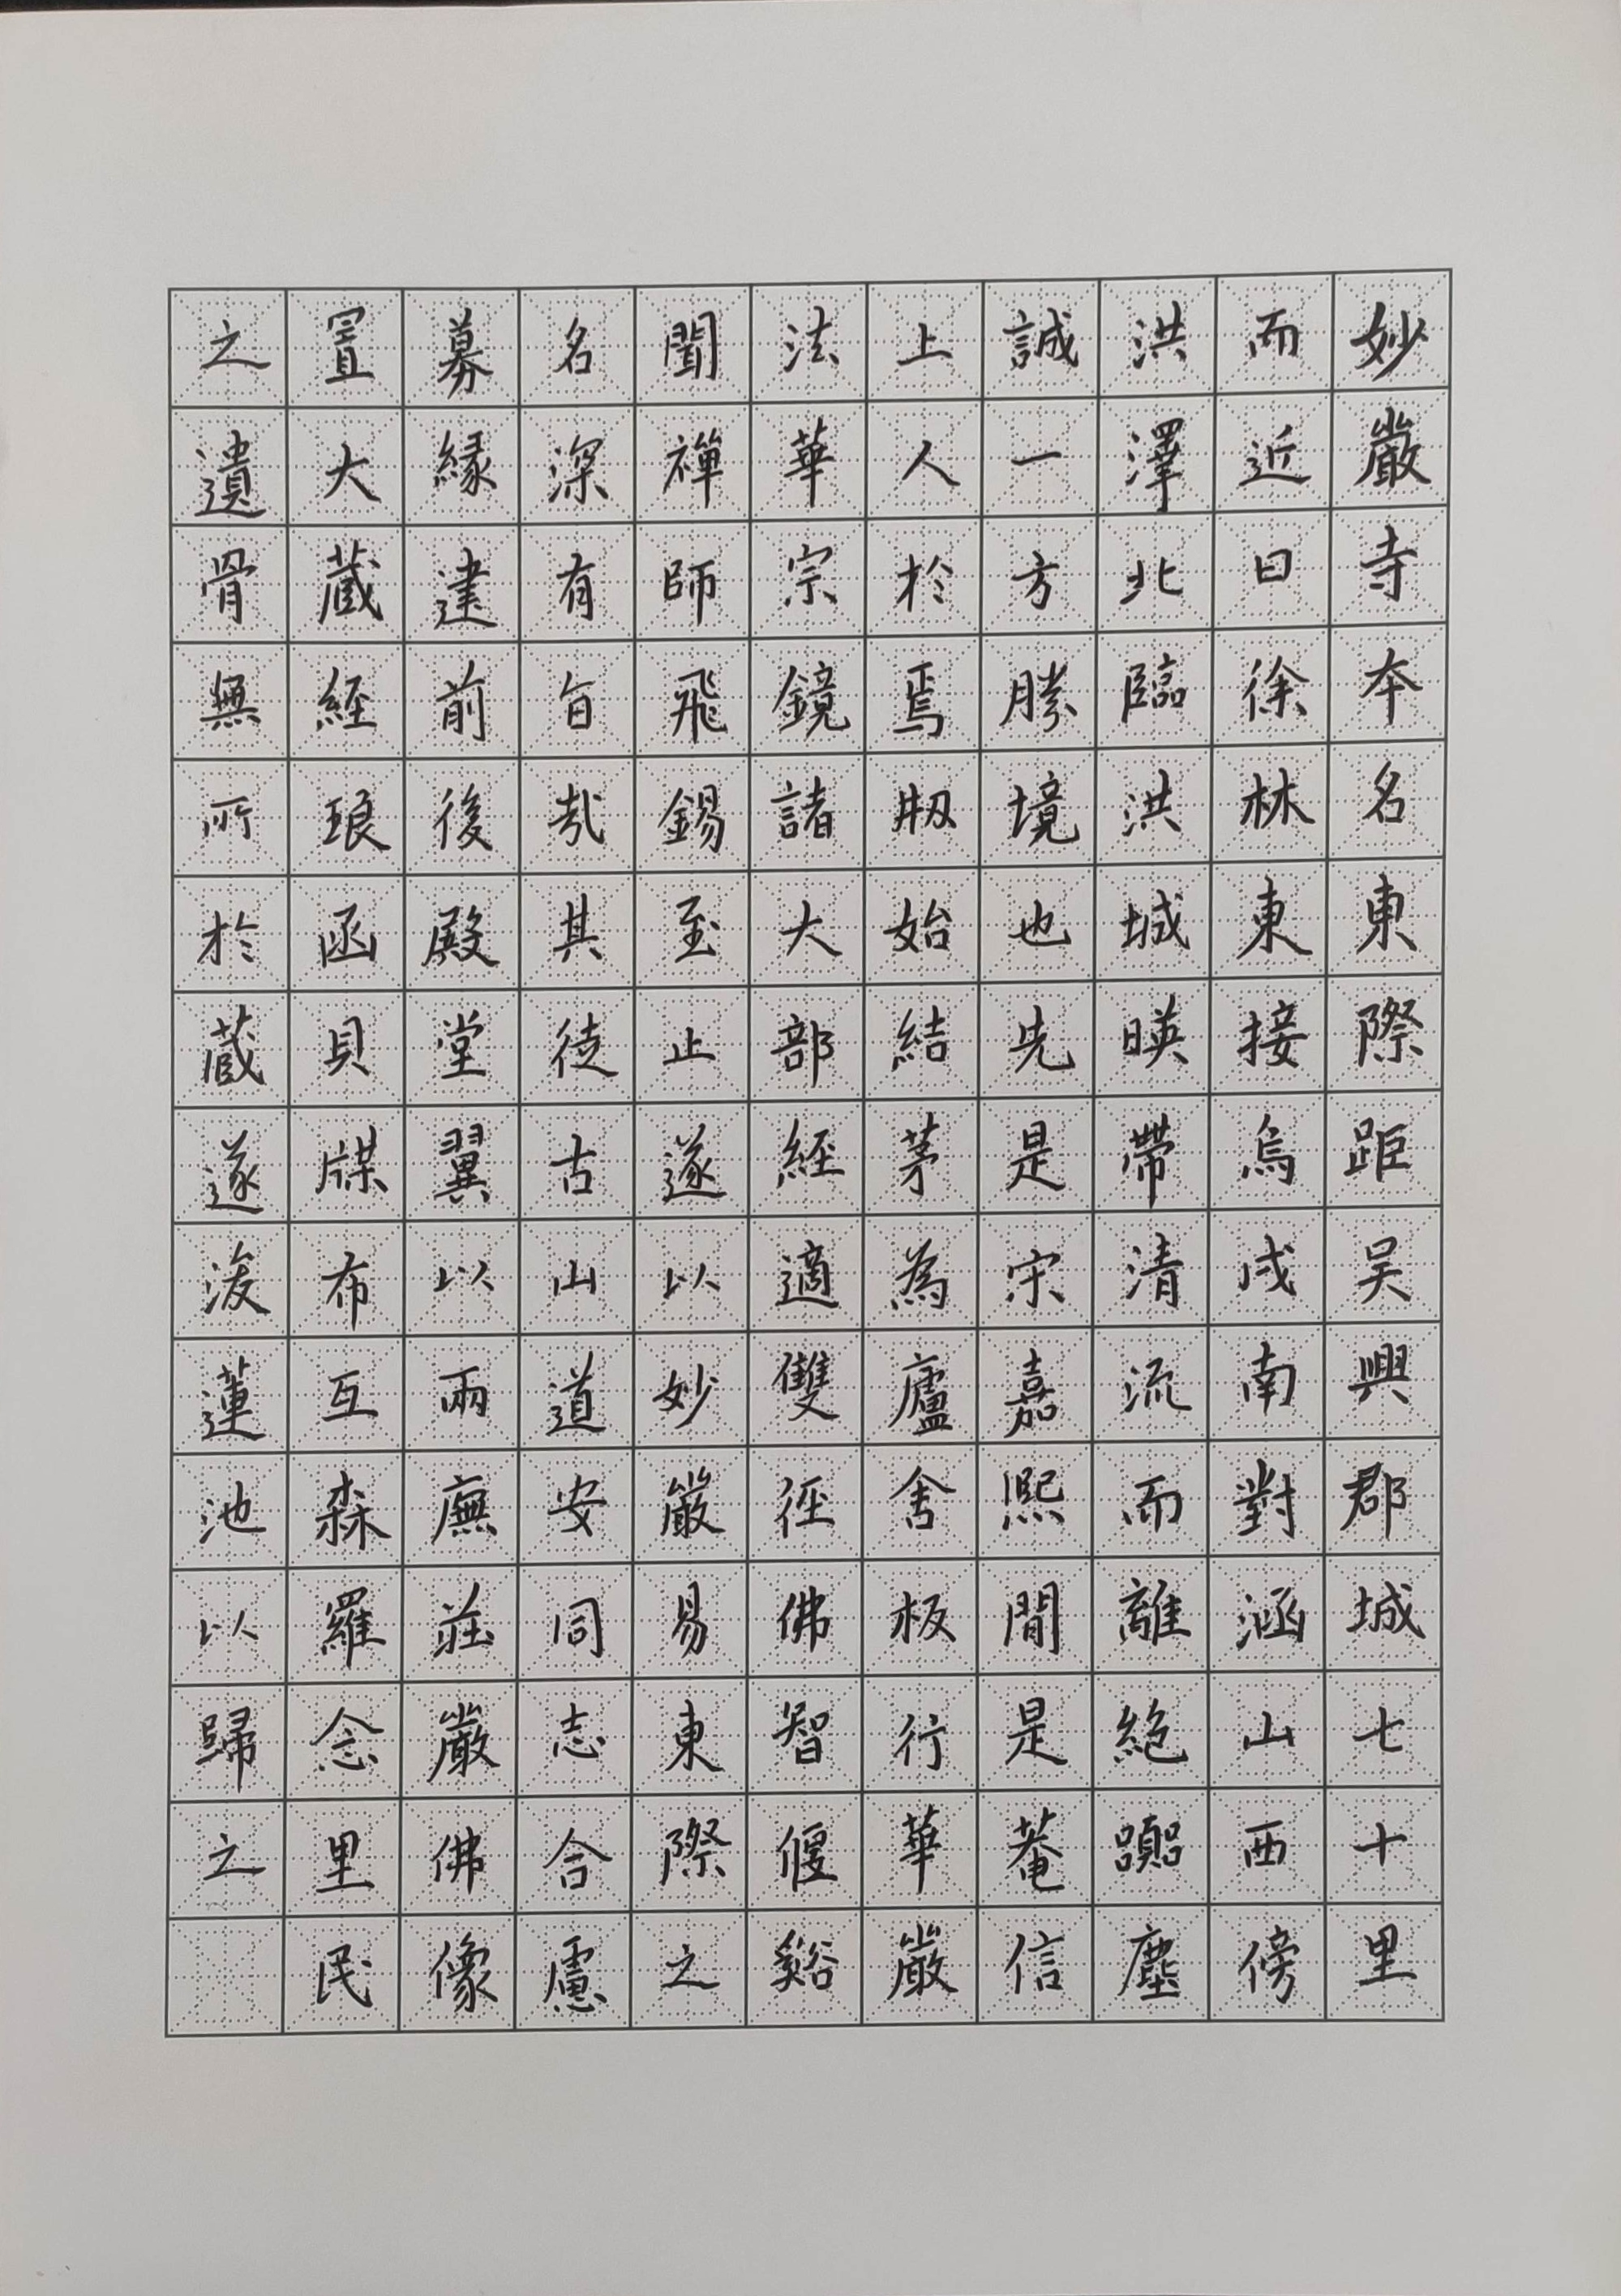 妙嚴寺本名東際距吴興郡城七十里
而近曰徐林東接烏戍南對涵山西傍
洪澤北臨洪城暎帶清流而離絶嚻塵
誠一方勝境也先是宋嘉熙間是菴信
上人於焉刱始結茅為廬舍板行華嚴
法華宗鏡諸大部經適雙徑佛智偃谿
聞禪師飛錫至止遂以妙嚴易東際之
名深有旨哉其徒古山道安同志合慮
募緣建前後殿堂翼以兩廡莊嚴佛像
置大藏經琅函貝牒布互森羅念里民
之遺骨無所於藏遂浚蓮池以歸之